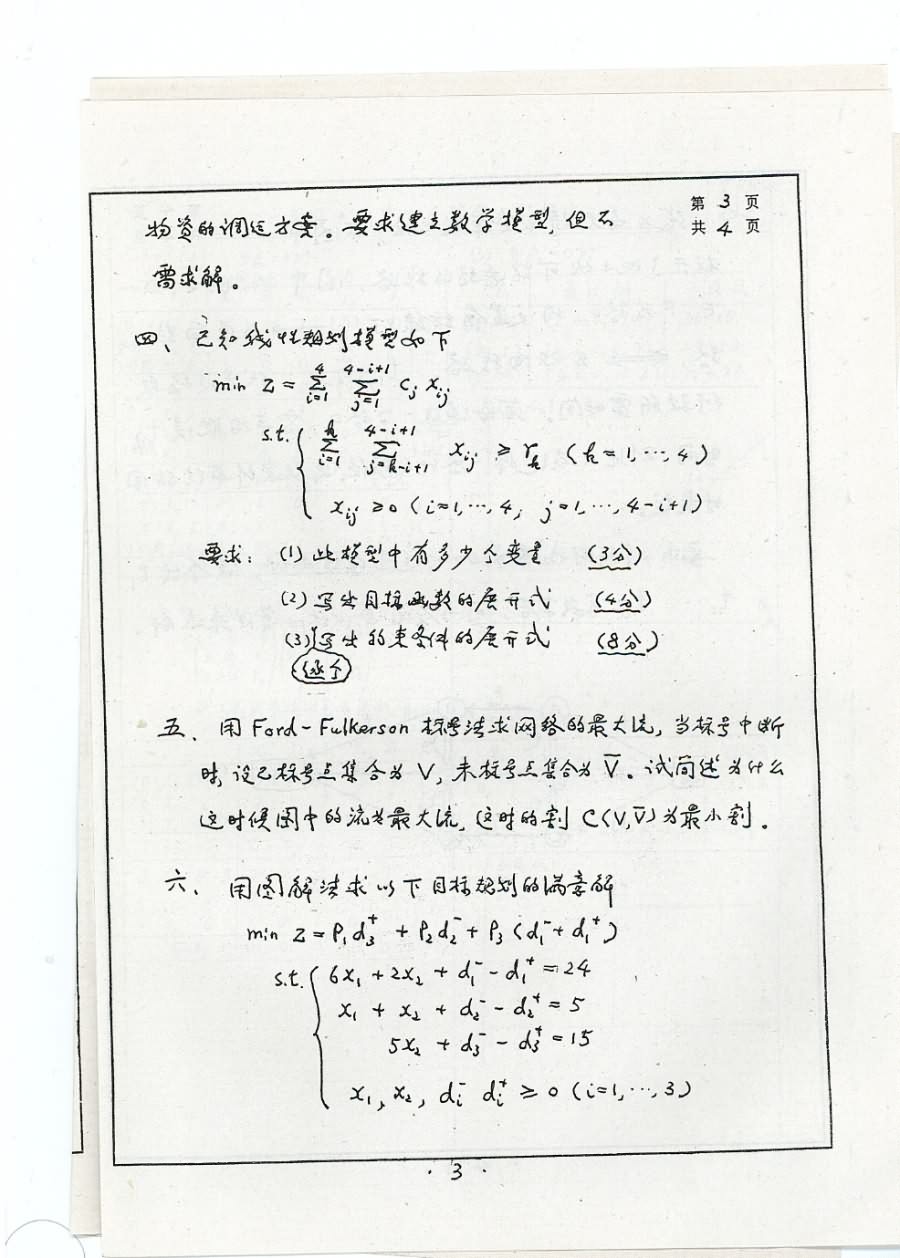 第 3 页
共 4 页
物资的调运方案。要求建立数学模型,但不
需求解。
四、已知线性规划模型如下
min Z = Σ_{i=1}^{4} Σ_{j=1}^{4-i+1} C_j x_{ij}
s.t. { Σ_{i=1}^{k} Σ_{j=k-i+1}^{4-i+1} x_{ij} ≥ r_k (k=1,…,4)
x_{ij} ≥ 0 (i=1,…,4, j=1,…,4-i+1)
要求:(1) 此模型中有多少个变量 (3分)
(2) 写出目标函数的展开式 (4分)
(3) 写出约束条件的展开式 (8分)
五、用 Ford-Fulkerson 标号法求网络的最大流,当标号中断
时,设已标号点集合为 V,未标号点集合为 V̅。试简述为什么
这时候图中的流为最大流,这时的割 C(V,V̅) 为最小割。
六、用图解法求以下目标规划的满意解
min Z = P₁d₃⁺ + P₂d₂⁻ + P₃(d₁⁻ + d₁⁺)
s.t. { 6x₁ + 2x₂ + d₁⁻ - d₁⁺ = 24
x₁ + x₂ + d₂⁻ - d₂⁺ = 5
5x₂ + d₃⁻ - d₃⁺ = 15
x₁, x₂, dᵢ⁻ dᵢ⁺ ≥ 0 (i=1,…,3)
· 3 ·